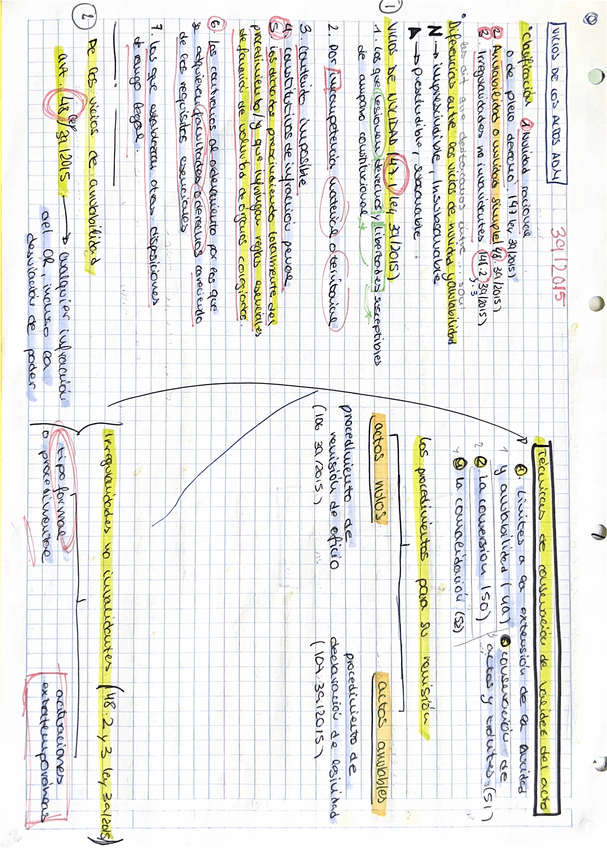 39/2015
VICIOS DE LOS ACTOS ADM
*Clasificación: 1 Nulidad racional
o de pleno derecho. (47 ley 39/2015)
2. Anulabilidad o nulidad simple (48 39/2015)
3. Irregularidades no invalidantes (48.2 y 3 39/2015)
Diferencias entre los vicios de nulidad y anulabilidad
N → imprescriptible, insubsanable
A → prescriptible, subsanable.
1 VICIOS DE NULIDAD (47) (ley 39/2015)
1. los que lesionen derechos y libertades susceptibles
de amparo constitucional
2. Por incompetencia material o territorial
3. Contenido imposible
4. constitutivos de infracción penal
5. los dictados prescindiendo totalmente del
procedimiento/y que infringan reglas esenciales
de formación de voluntad de órganos colegiados.
6. los contrarios al ordenamiento por los que
se adquieren facultades o derechos careciendo
de los requisitos esenciales
7. los que establezcan otras disposiciones
de rango legal.
2 De los vicios de anulabilidad
art. 48 ley 39/2015 → cualquier infracción
del OR, incluso la
desviación de poder
Técnicas de conservación de validez del acto
1. Límites a la extensión de la nulidad
y anulabilidad (49)
3 conservación de
actos y trámites (51)
2 la conversión (50)
4 la convalidación (52)
los procedimientos para su revisión
actos nulos
procedimiento de
revisión de oficio
(106 39/2015)
actos anulables
procedimiento de
declaración de lesividad
(107 39/2015)
Irregularidades no invalidantes (48.2 y 3 ley 39/2015)
tipo formal
o procedimental
actuaciones
extratemporáneas